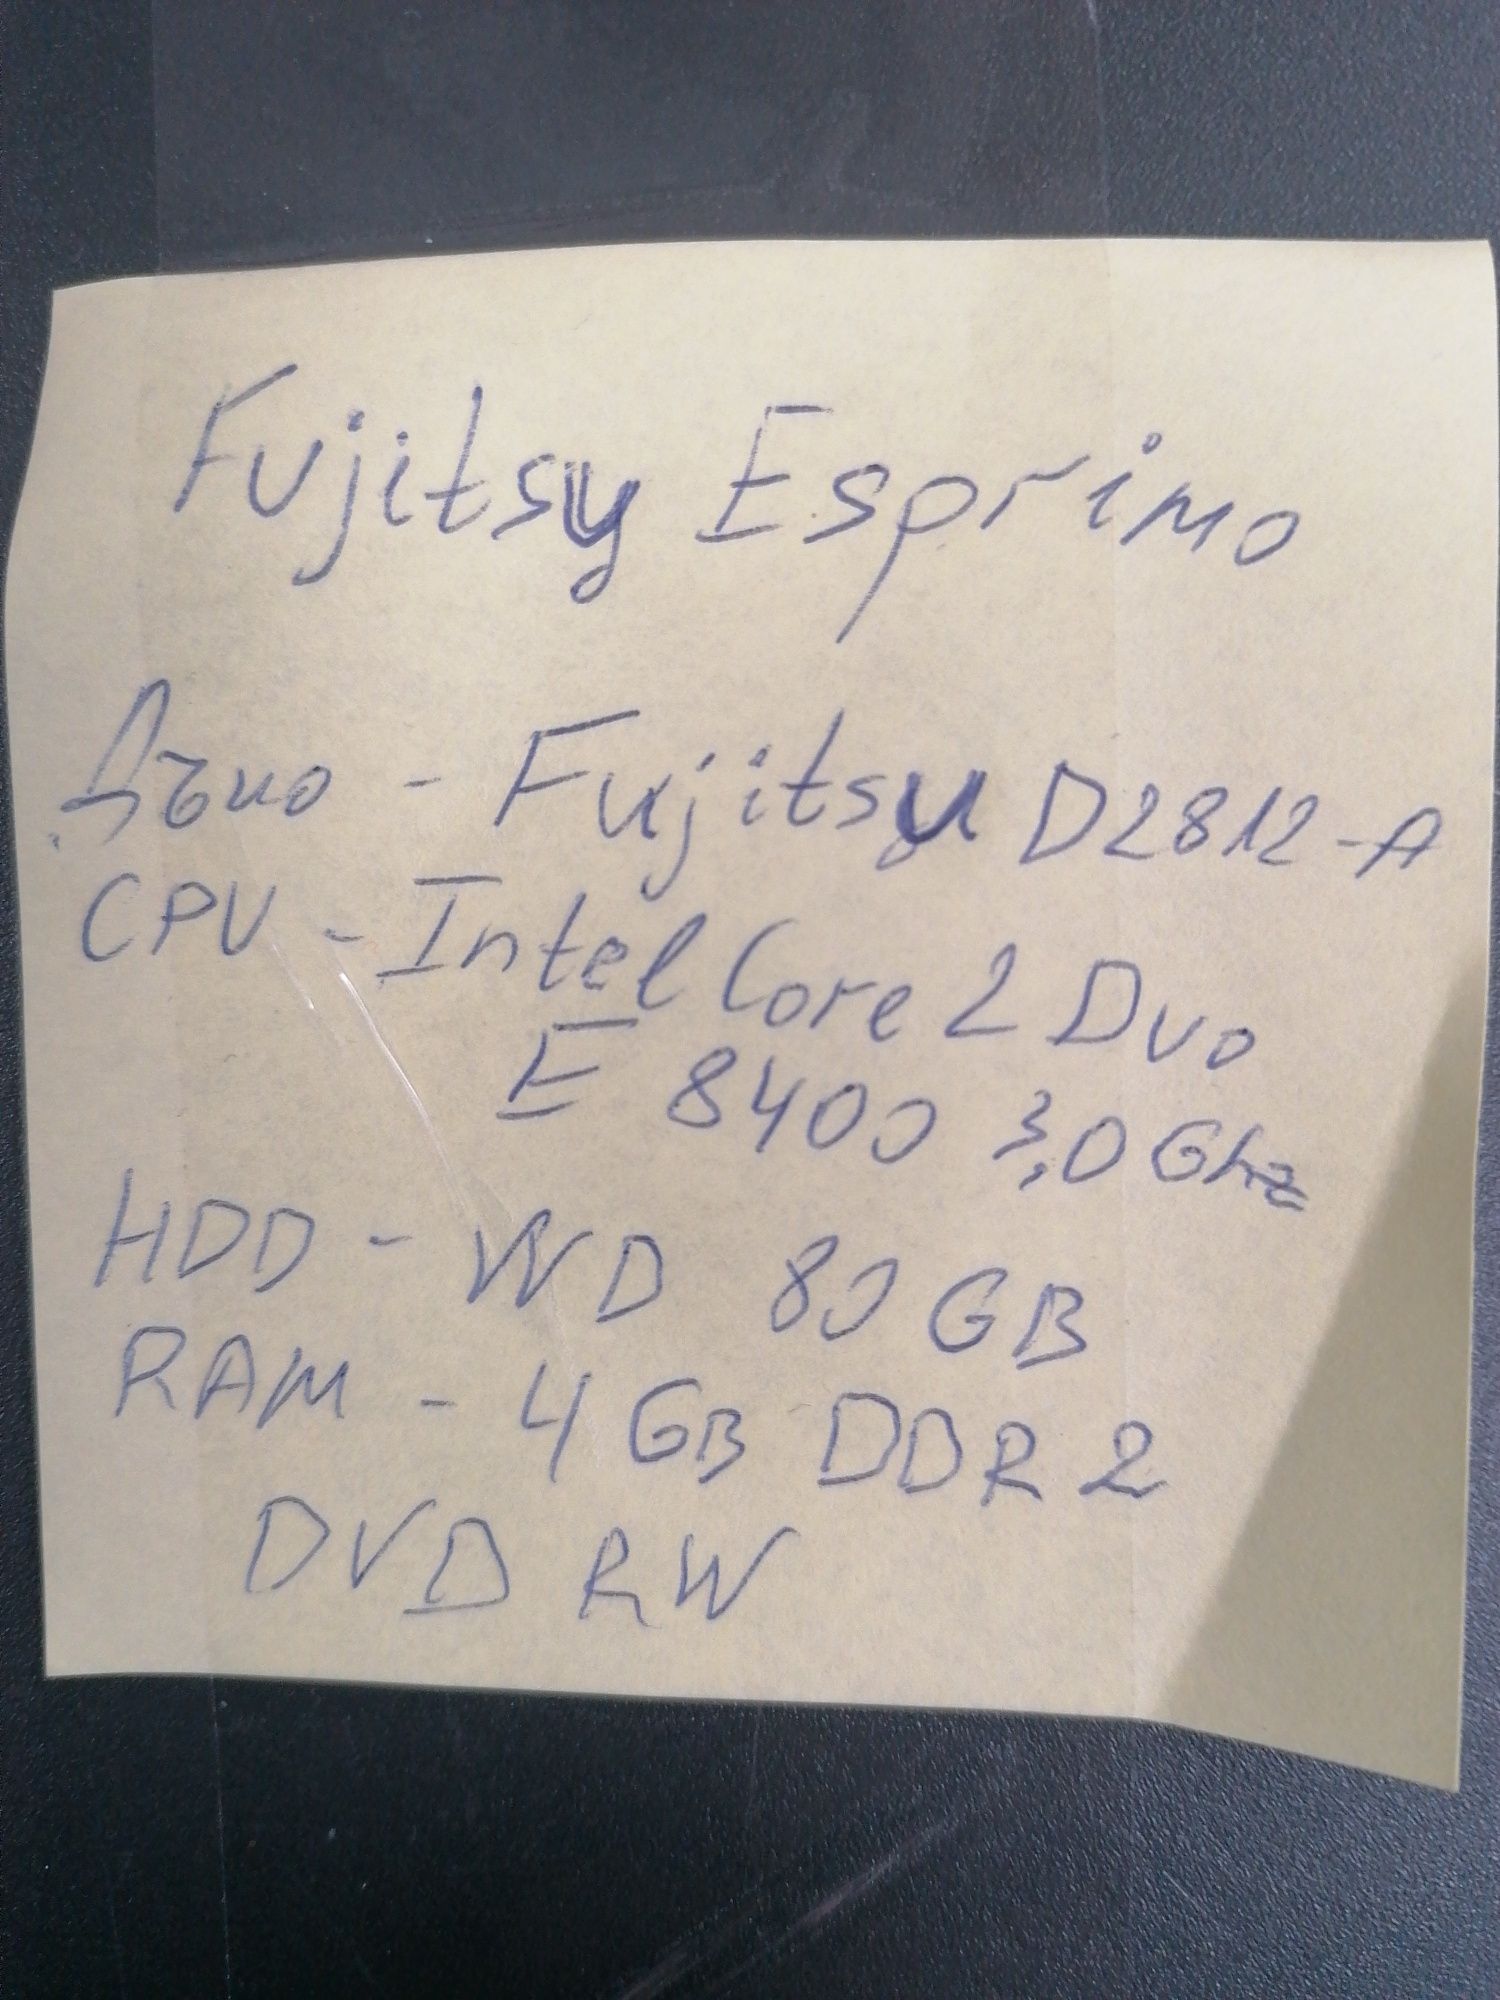 Fujitsy Esprimo
Дъно - Fujitsu D2812-A
CPU - Intel Core 2 Duo
E 8400 3,0 Ghz
HDD - WD 80 GB
RAM - 4 GB DDR 2
DVD RW